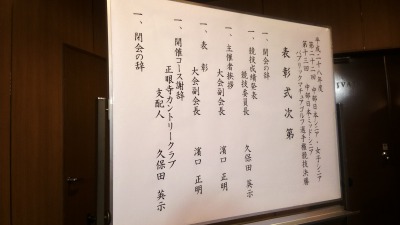 平成二十八年度
第二十二回 中部日本シニア・女子シニア
第十三回 中部日本ミッドシニア
パブリックアマチュアゴルフ選手権競技決勝
表彰式次第
一、開会の辞
一、競技成績発表
競技委員長 久保田 英示
一、主催者挨拶
大会副会長 濱口 正明
一、表 彰
大会副会長 濱口 正明
一、開催コース謝辞
正眼寺カントリークラブ
支配人 久保田 英示
一、閉会の辞